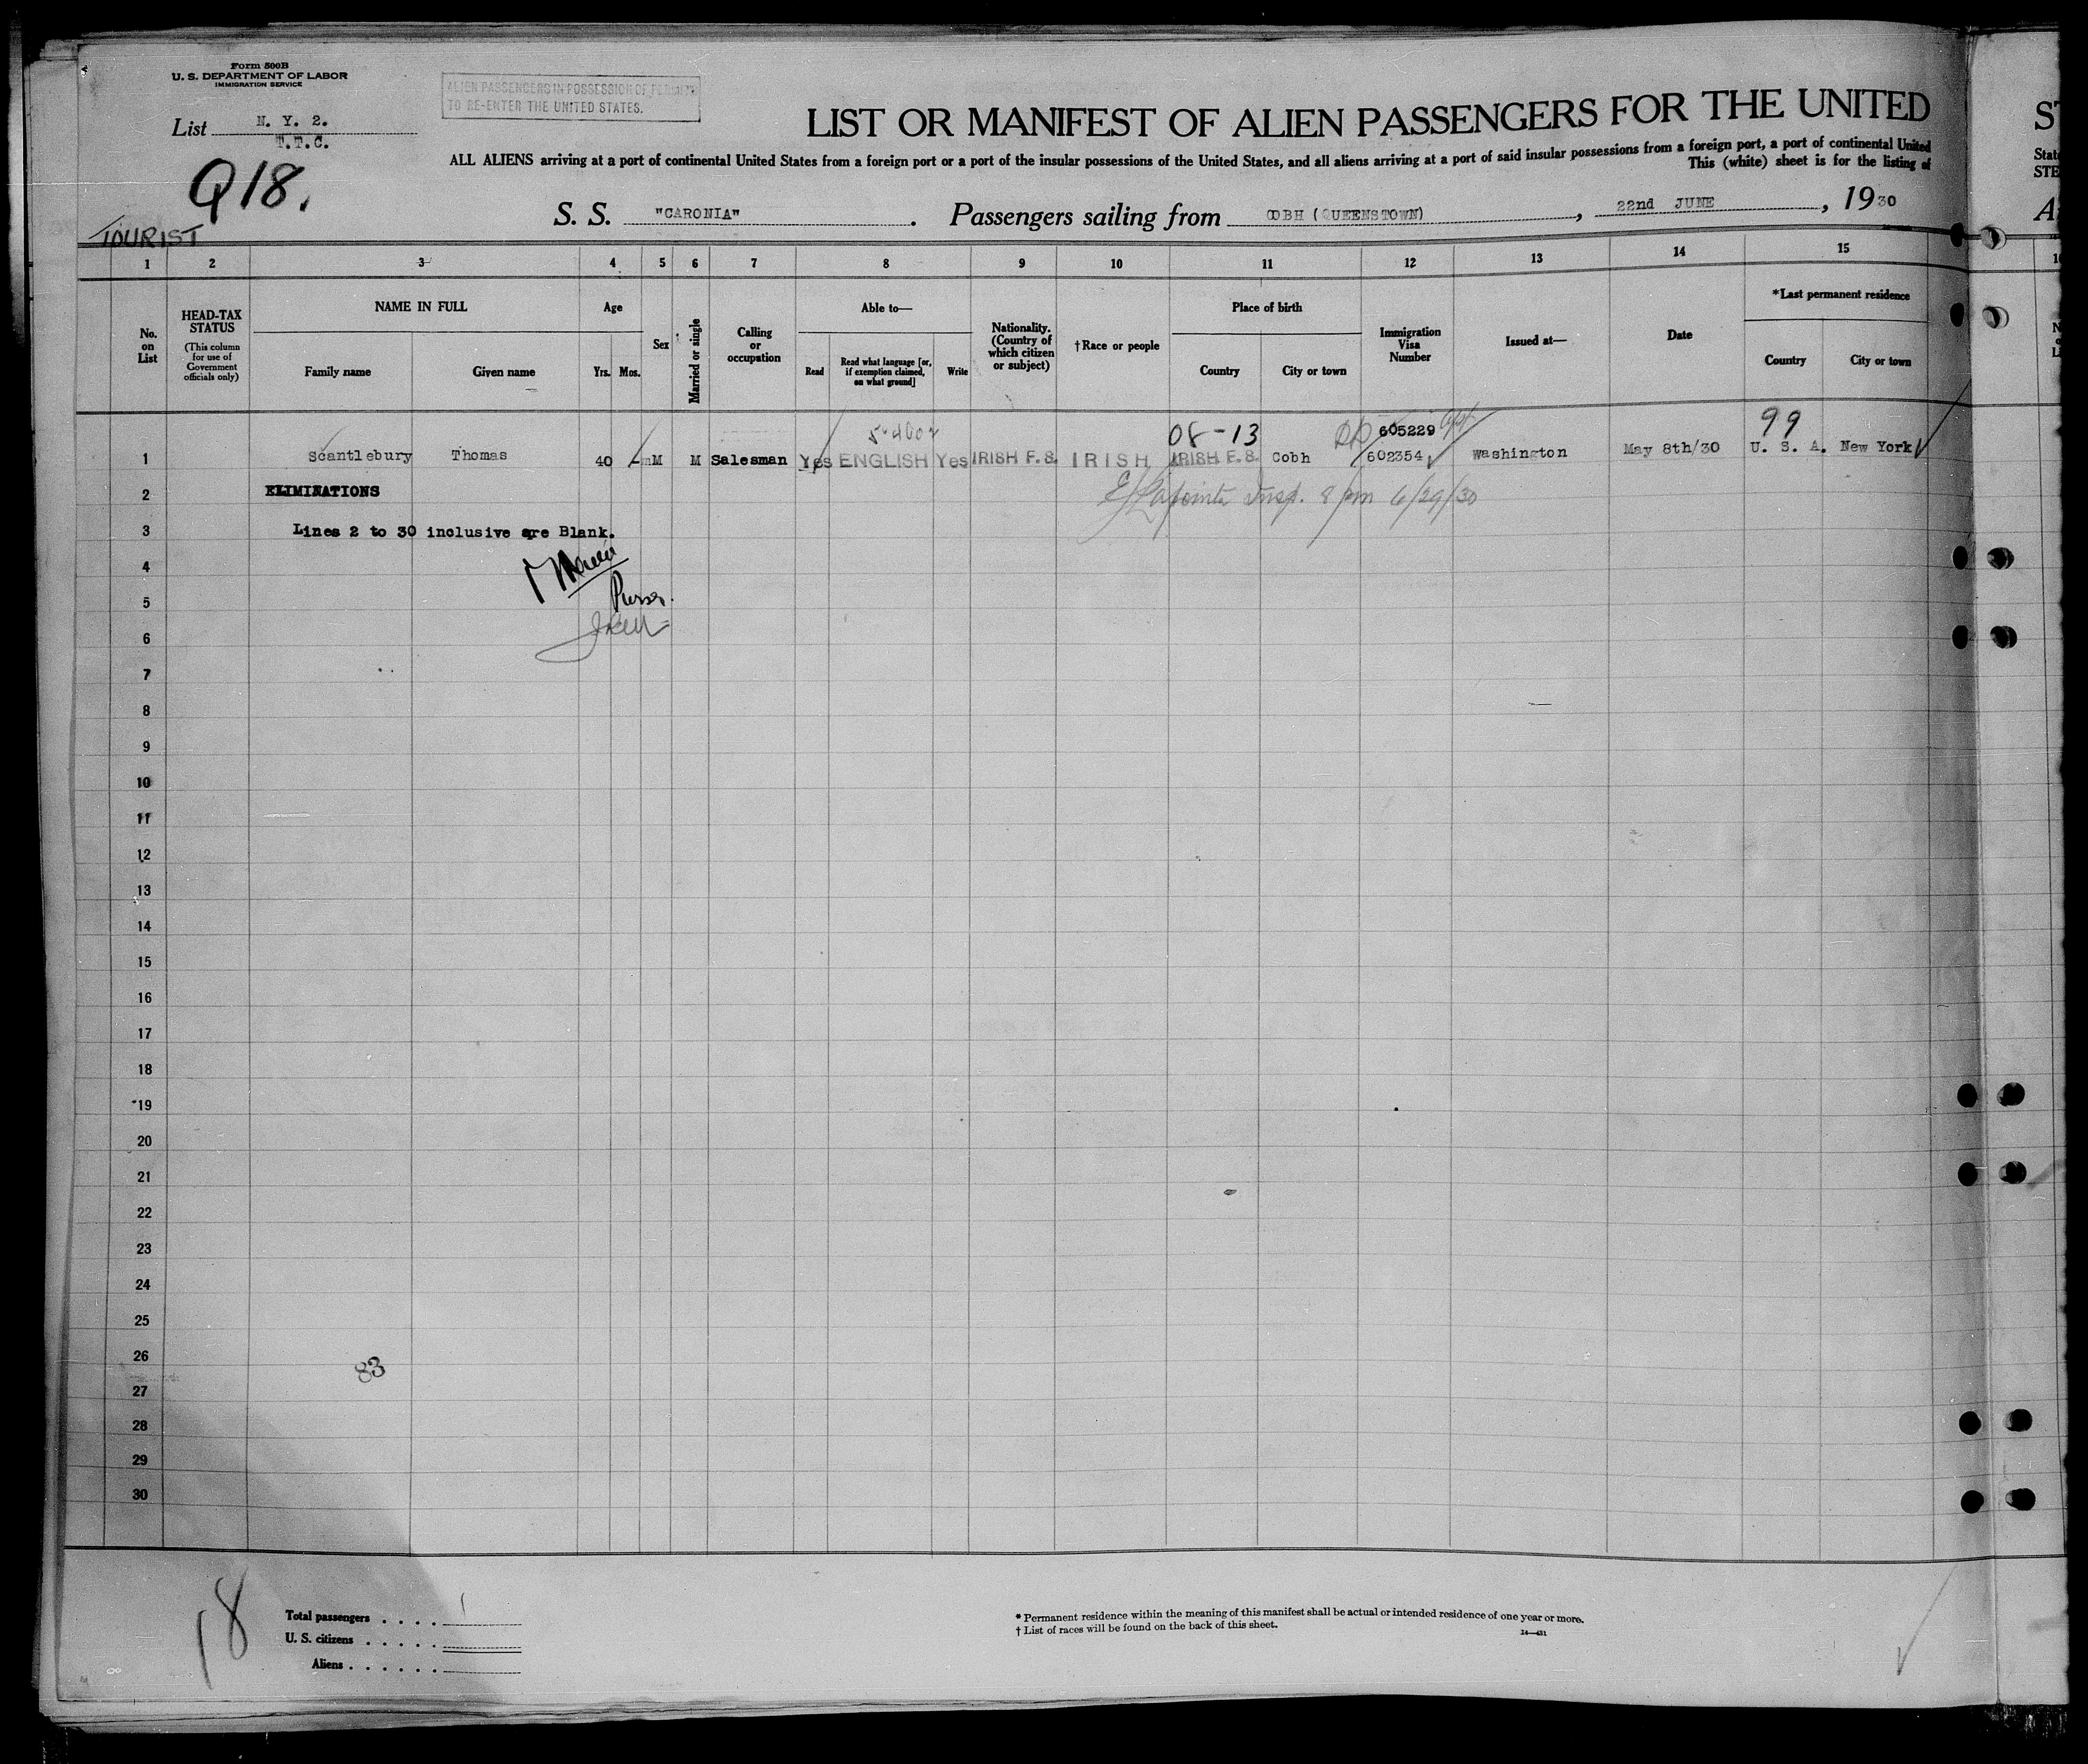 Form 500B
U. S. DEPARTMENT OF LABOR
IMMIGRATION SERVICE
ALIEN PASSENGERS IN POSSESSION OF PERMIT
TO RE-ENTER THE UNITED STATES.
List N. Y. 2.
T.T.C.
Q18.
TOURIST
LIST OR MANIFEST OF ALIEN PASSENGERS FOR THE UNITED
ALL ALIENS arriving at a port of continental United States from a foreign port or a port of the insular possessions of the United States, and all aliens arriving at a port of said insular possessions from a foreign port, a port of continental United
This (white) sheet is for the listing of
S. S. "CARONIA". Passengers sailing from COBH (QUEENSTOWN), 22nd JUNE, 1930
ST
State
STE
A
1 2 3 4 5 6 7 8 9 10 11 12 13 14 15
No. on List
HEAD-TAX STATUS
(This column for use of Government officials only)
NAME IN FULL
Family name Given name
Age
Yrs. Mos.
Sex
Married or single
Calling or occupation
Able to—
Read
Read what language [or, if exemption claimed, on what ground]
Write
Nationality. (Country of which citizen or subject)
†Race or people
Place of birth
Country City or town
Immigration Visa Number
Issued at—
Date
*Last permanent residence
Country City or town
08-13 605229 99
1 Scantlebury Thomas 40 - M M Salesman Yes ENGLISH Yes IRISH F.S. IRISH IRISH F.S. Cobh 602354 Washington May 8th/30 U. S. A. New York
2 ELIMINATIONS Insp. 8 pm 6/29/30
3 Lines 2 to 30 inclusive are Blank.
4
5 Purser.
6
7
8
9
10
11
12
13
14
15
16
17
18
19
20
21
22
23
24
25
26
83
27
28
29
30
18
Total passengers . . . . 1
U. S. citizens . . . . .
Aliens . . . . . .
* Permanent residence within the meaning of this manifest shall be actual or intended residence of one year or more.
† List of races will be found on the back of this sheet.
14—431